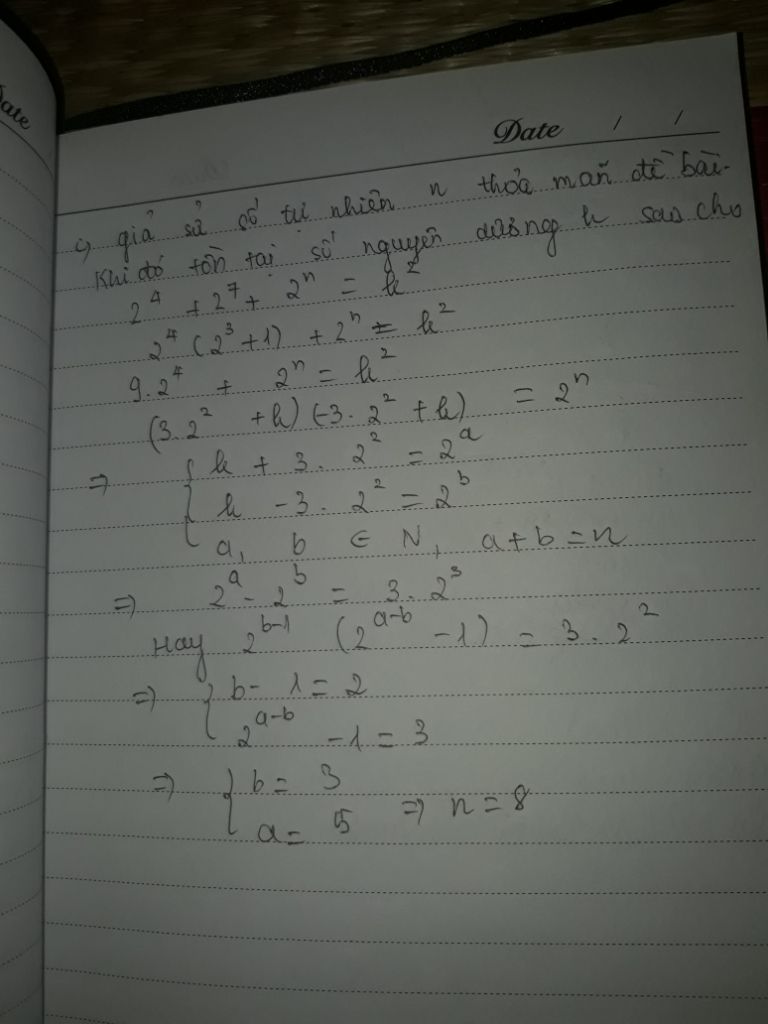 ate
Date / /
c, giả sử số tự nhiên n thỏa mãn đề bài.
Khi đó tồn tại số nguyên dương k sao cho
2⁴ + 2⁷ + 2ⁿ = k²
2⁴ (2³ + 1) + 2ⁿ = k²
9.2⁴ + 2ⁿ = k²
(3.2² + k) (-3.2² + k) = 2ⁿ
⇒ { k + 3.2² = 2ᵃ
k - 3.2² = 2ᵇ
a, b ∈ N, a+b=n
⇒ 2ᵃ - 2ᵇ = 3.2³
Hay 2ᵇ⁻¹ (2ᵃ⁻ᵇ - 1) = 3.2²
⇒ { b - 1 = 2
2ᵃ⁻ᵇ - 1 = 3
⇒ { b = 3
a = 5 ⇒ n = 8